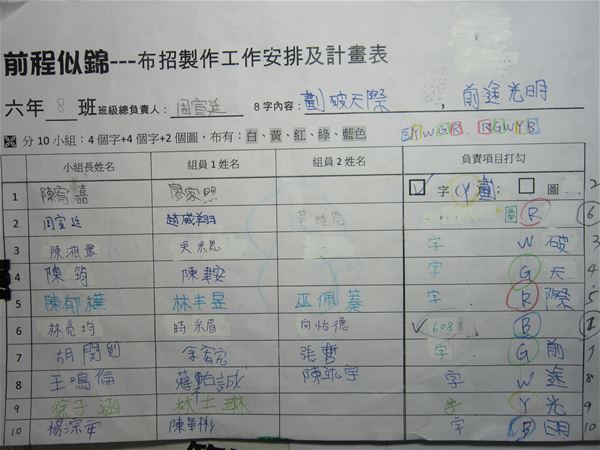 前程似錦---布招製作工作安排及計畫表
六年 8 班班級總負責人: 周宣廷 8字內容: 劃破天際 , 前途光明
分10小組:4個字+4個字+2個圖,布有:白、黃、紅、綠、藍色 BYWGR. RGWYB
小組長姓名 組員1姓名 組員2姓名 負責項目打勾
1 陳宥嘉 廖家興 ✓ 字(Y劃); □ 圖 2
2 周宣廷 趙威翔 圖 R 6
3 陳湘豫 吳禾恩 字 W 破 3
4 陳筠 陳畇安 字 G 天 4
5 陳郁樺 林丰昱 巫佩蓁 字 R 際 5
6 林亮均 時禾眉 向怡德 ✓ 608 B 1
7 字 G 前 7
8 王鳴倫 字 W 途 8
9 徐子涵 林士琳 字 Y 光 9
10 楊深安 陳華彬 字 B 明 10